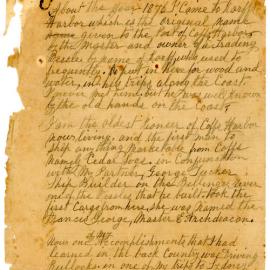 About the year 1870 I Came to Korff
Harbor which is the original name
given to the Port of Coffs Harbor
by the Master and owner of a trading
Vessel by name of Korff, who used to
frequently to put in here for wood and
water, in his trips along the Coast
I never met him, but he was well known
by the old hands on the Coast.
I am the oldest Pioneer of Coffs Harbor
now living, and the first man to
Ship anything Marketable from Coffs
Namely Cedar Logs. in Conjunction
with My Partner, George Tucker
Ship Builder on the Bellinger River
the Vessel that he built took the
last Cargo from here, she was named the
Francis George, Master E. Archdeacon.
Now one of My Accomplishments that I had
learned in the back Country was Driving
Bullocks on one of My trips to Sydney